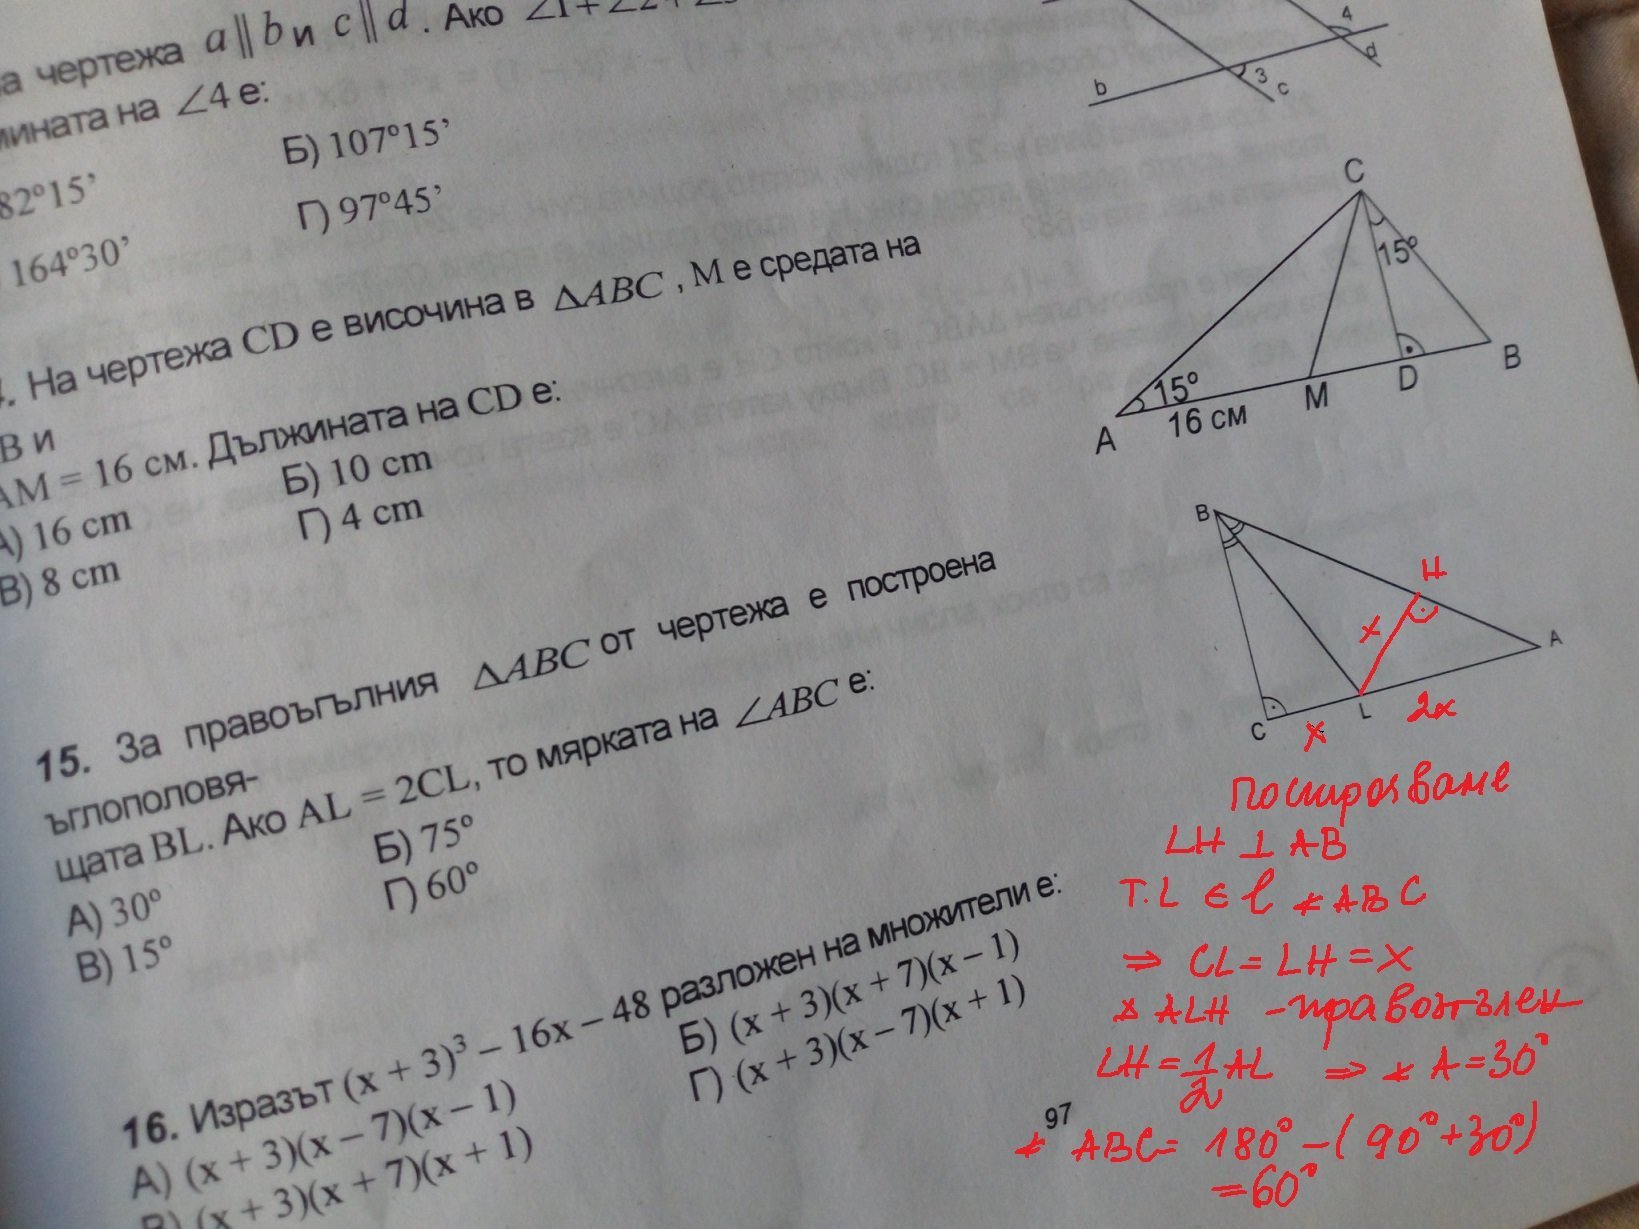 а чертежа a∥b и c∥d. Ако ∠1+∠2+∠3
мината на ∠4 е:
82°15’
Б) 107°15’
164°30’
Г) 97°45’
b
3
c
4
d
. На чертежа CD е височина в △ABC, М е средата на
В и
AM = 16 см. Дължината на CD е:
А) 16 cm
Б) 10 cm
В) 8 cm
Г) 4 cm
C
15°
15°
16 см
A
M
D
B
15. За правоъгълния △ABC от чертежа е построена
ъглополовя-
щата BL. Ако AL = 2CL, то мярката на ∠ABC е:
А) 30°
Б) 75°
В) 15°
Г) 60°
B
H
x
A
C
L
x
2x
Построяваме
LH ⊥ AB
т. L ∈ l ∢ ABC
⇒ CL = LH = x
△ ALH - правоъгълен
LH = 1/2 AL ⇒ ∢ A = 30°
∢ ABC = 180° - (90° + 30°)
= 60°
16. Изразът (x + 3)³ – 16x – 48 разложен на множители е:
А) (x + 3)(x – 7)(x – 1)
Б) (x + 3)(x + 7)(x – 1)
В) (x + 3)(x + 7)(x + 1)
Г) (x + 3)(x – 7)(x + 1)
97